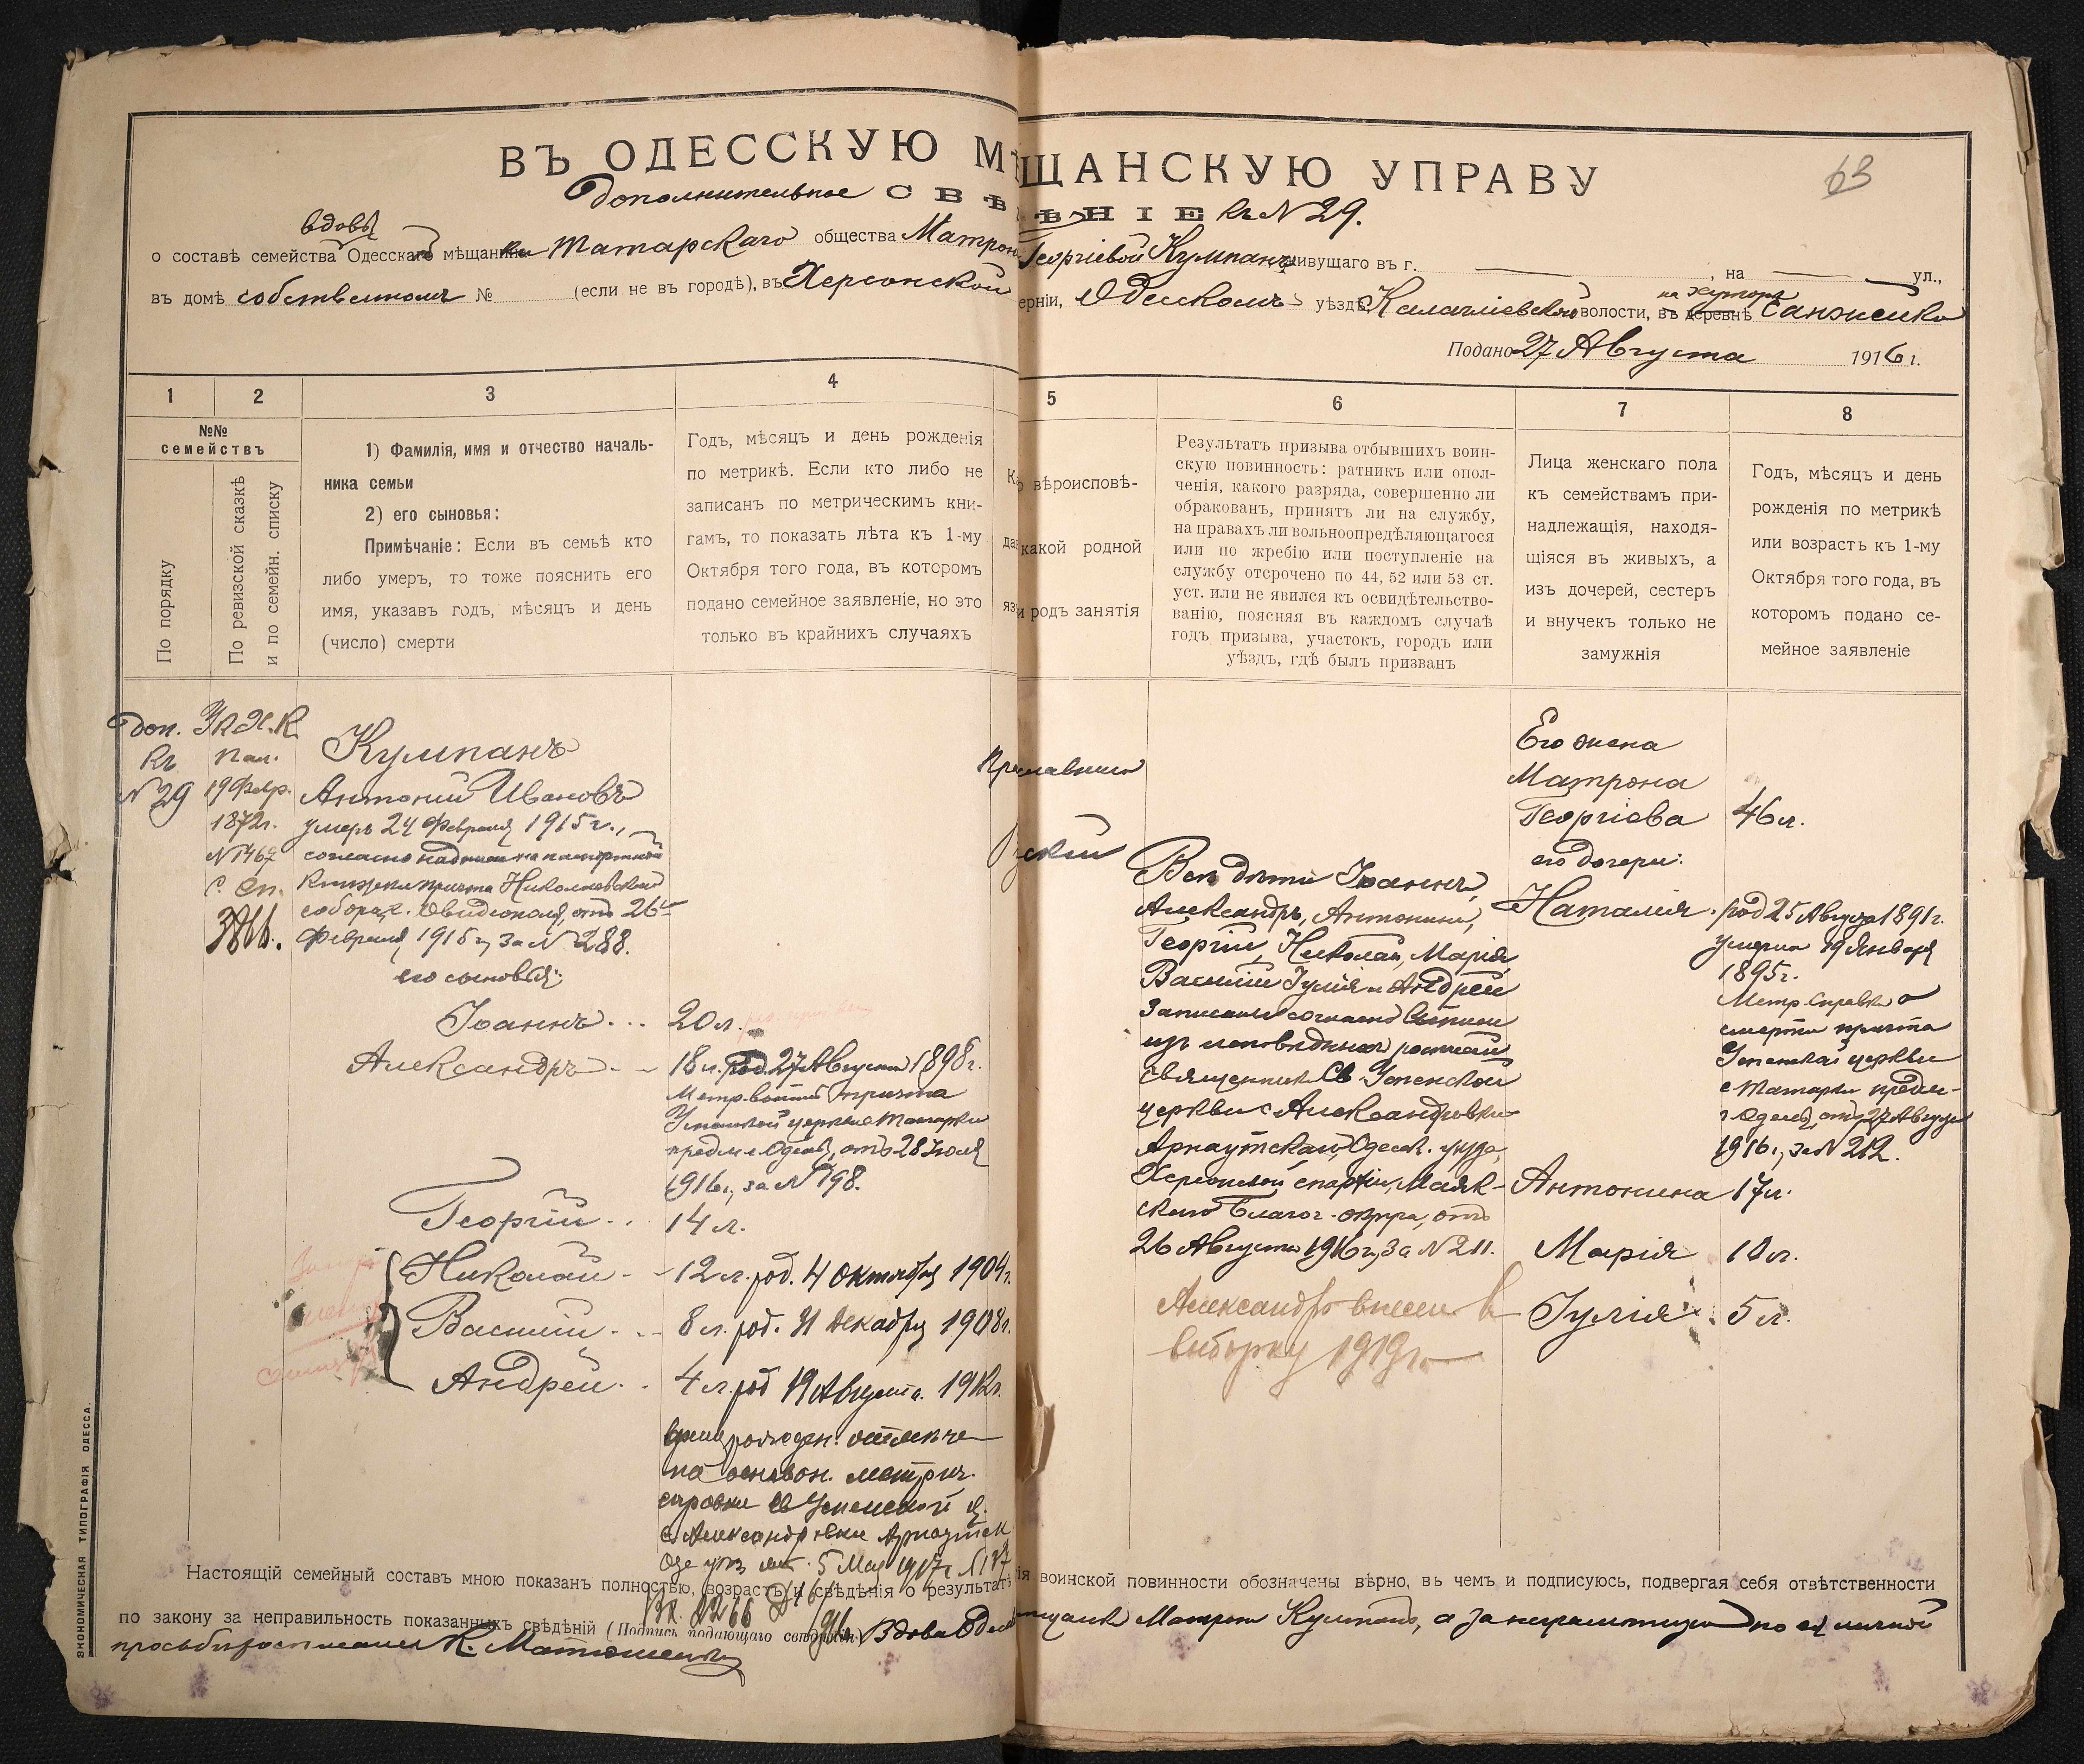 ВЪ ОДЕССКУЮ МѢЩАНСКУЮ УПРАВУ
63
Дополнительное СВѢДѢНІЕ къ № 29.
вдовѣ
о составѣ семейства Одесскаго мѣщанина Татарскаго общества Матроны Георгіевой Кумпанъ живущаго въ г. , на ул.,
въ домѣ собственномъ № (если не въ городѣ), въ Херсонской губерніи, Одесскомъ уѣздѣ, волости, въ деревнѣ на хуторѣ Санжейка
Подано 27 Августа 1916 г.
1
2
3
4
5
6
7
8
№№
семействъ
По порядку
По ревизской сказкѣ
и по семейн. списку
1) Фамилія, имя и отчество началь-
ника семьи
2) его сыновья:
Примѣчаніе: Если въ семьѣ кто
либо умеръ, то тоже пояснить его
имя, указавъ годъ, мѣсяцъ и день
(число) смерти
Годъ, мѣсяцъ и день рожденія
по метрикѣ. Если кто либо не
записанъ по метрическимъ кни-
гамъ, то показать лѣта къ 1-му
Октября того года, въ которомъ
подано семейное заявленіе, но это
только въ крайнихъ случаяхъ
вѣроисповѣ-
какой родной
и родъ занятія
Результатъ призыва отбывшихъ воин-
скую повинность: ратникъ или опол-
ченія, какого разряда, совершенно ли
обракованъ, принятъ ли на службу,
на правахъ ли вольноопредѣляющагося
или по жребію или поступленіе на
службу отсрочено по 44, 52 или 53 ст.
уст. или не явился къ освидѣтельство-
ванію, поясняя въ каждомъ случаѣ
годъ призыва, участокъ, городъ или
уѣздъ, гдѣ былъ призванъ
Лица женскаго пола
къ семействамъ при-
надлежащія, находя-
щіяся въ живыхъ, а
изъ дочерей, сестеръ
и внучекъ только не
замужнія
Годъ, мѣсяцъ и день
рожденія по метрикѣ
или возрастъ къ 1-му
Октября того года, въ
котором подано се-
мейное заявленіе
Доп.
къ
№ 29
Ук Х.К.
Пал.
19 Февр.
1872 г.
№ 1467
с сп.
Кумпанъ
Антоній Ивановъ
умеръ 24 Февраля 1915 г.,
согласно надписи на паспортной
книжки причта Николаевскаго
собора, г. Овидіополя, отъ 26
Февраля 1915 г., за № 288.
его сыновья:
Іоаннъ
20 л.
Александръ
18 л. род. 27 Августа 1898 г.
Метр. выпись причта
Успенской церкви с Татарки
предм. г Одессы, отъ 28 Іюля
1916 г., за № 198.
Георгій
14 л.
Николай
12 л. род. 4 октября 1904 г.
Василій
8 л. род. 31 декабря 1908 г.
Андрей
4 л. род 19 Августа 1912 г.
время рожден.
на основан. метрич.
справки Св Успенской ц.
с Александровки Арнаутск
Оде уѣз 5 Мая 1917 г №
Православный
Русскій
Всѣ дѣти Іоаннъ,
Александръ, Антонина,
Георгій, Николай, Марія,
Василій Іулія и Андрей
записаны согласно выписи
изъ исповѣдныхъ росписей
священника Св Успенской
церкви с Александровки
Арнаутской, Одесск. уѣзда,
Херсонской епархіи, Маяк-
скаго Благоч. округа, отъ
26 Августа 1916 г., за № 211.
Александръ внесен в
выборку 1919 г
Его жена
Матрона
Георгіева
46 л.
его дочери:
Наталія
род 25 Августа 1891 г.
умерла 19 Января
1895 г.
Метр. справка о
смерти причта
Успенской церкви
с Татарки предм.
г Одессы, отъ 27 Августа
1916 г., за № 212.
Антонина
17 л.
Марія
10 л.
Іулія
5 л.
Настоящій семейный составъ мною показанъ полностью, возрастъ и свѣдѣнія о результатѣ воинской повинности обозначены вѣрно, въ чемъ и подписуюсь, подвергая себя отвѣтственности
по закону за неправильность показанныхъ свѣдѣній (Подпись подающаго свѣдѣнія) Вдова Одесск мѣщанка Матрона Кумпанъ, а за неграмотную по ея личной
просьбѣ росписался К.
ЭКОНОМИЧЕСКАЯ ТИПОГРАФІЯ ОДЕССА.